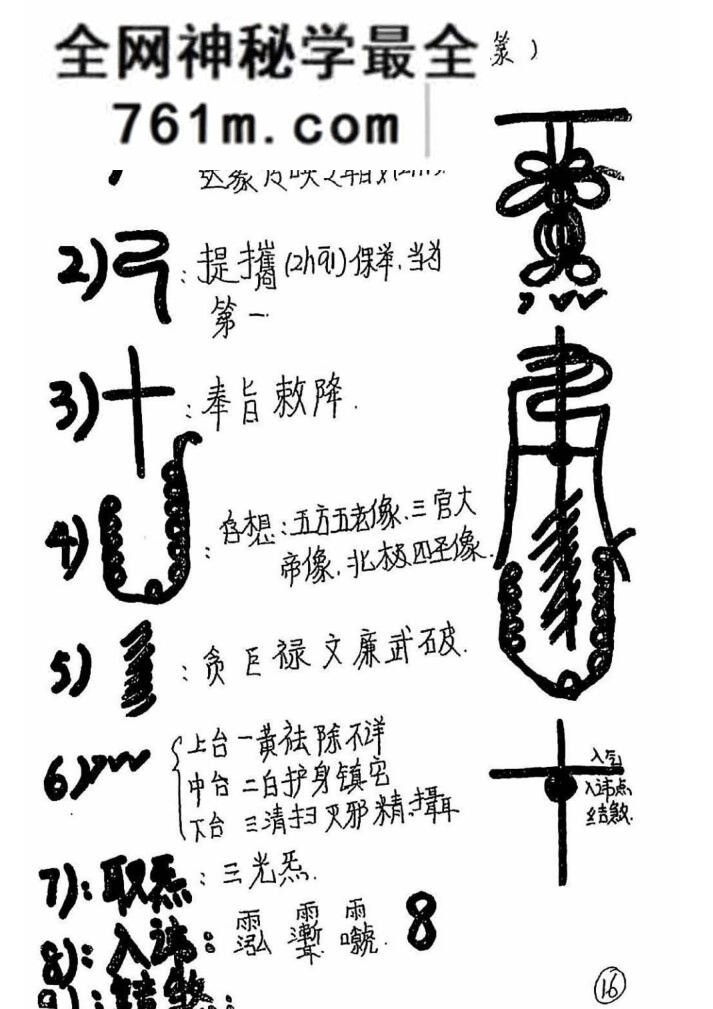 全网神秘学最全
761m.com
篆）
2)：提攜(zhī)保举.当为
第一
3)：奉旨敕降.
4)：存想：五方五老像.三官大
帝像.北极四圣像.
5)：贪巨禄文廉武破.
6)
上台一黄祛除不详
中台二白护身镇宅
下台三清扫灭邪精.攝
7)：取炁：三光炁.
8)：入讳：
8
9)：結煞：
入炁
入讳点
结煞.
16